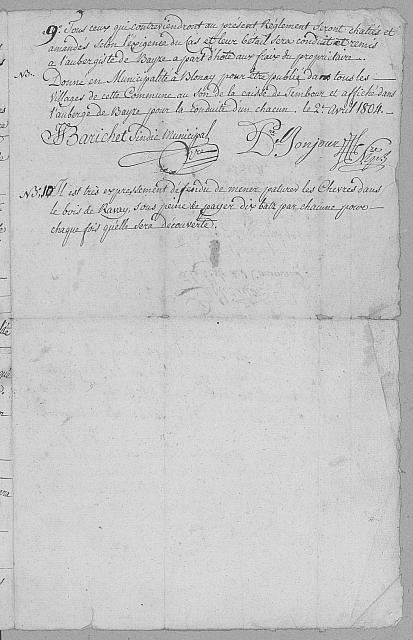 9º. Tous ceux qui contreviendront au present Réglement seront chatiés et
amandés selon l'exigence du Cas et leur betail sera conduit et remis
a l'aubergiste de Bayre a part d'hote aux fraix du propriétaire.
Donné en Municipalité a Blonay pour être publié dans tous les
Villages de cette Commune au son de la caisse de Tembour et affiché dans
l'auberge de Bayre pour la conduite d'un chacun. le 2e. Avril 1804.
Barichet Sindic Municipal
Bonjour
Nº. 10 Il est très expressement defendu de mener paturer les Chevres dans
le bois de Ravay, sous peine de payer dix batz par chacune pour
chaque fois quelle sera découverte.